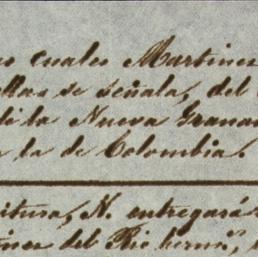 cuales Martinez
se señala, del
de la Nueva Grana
la de Colombia.
N. entregará
del Rio